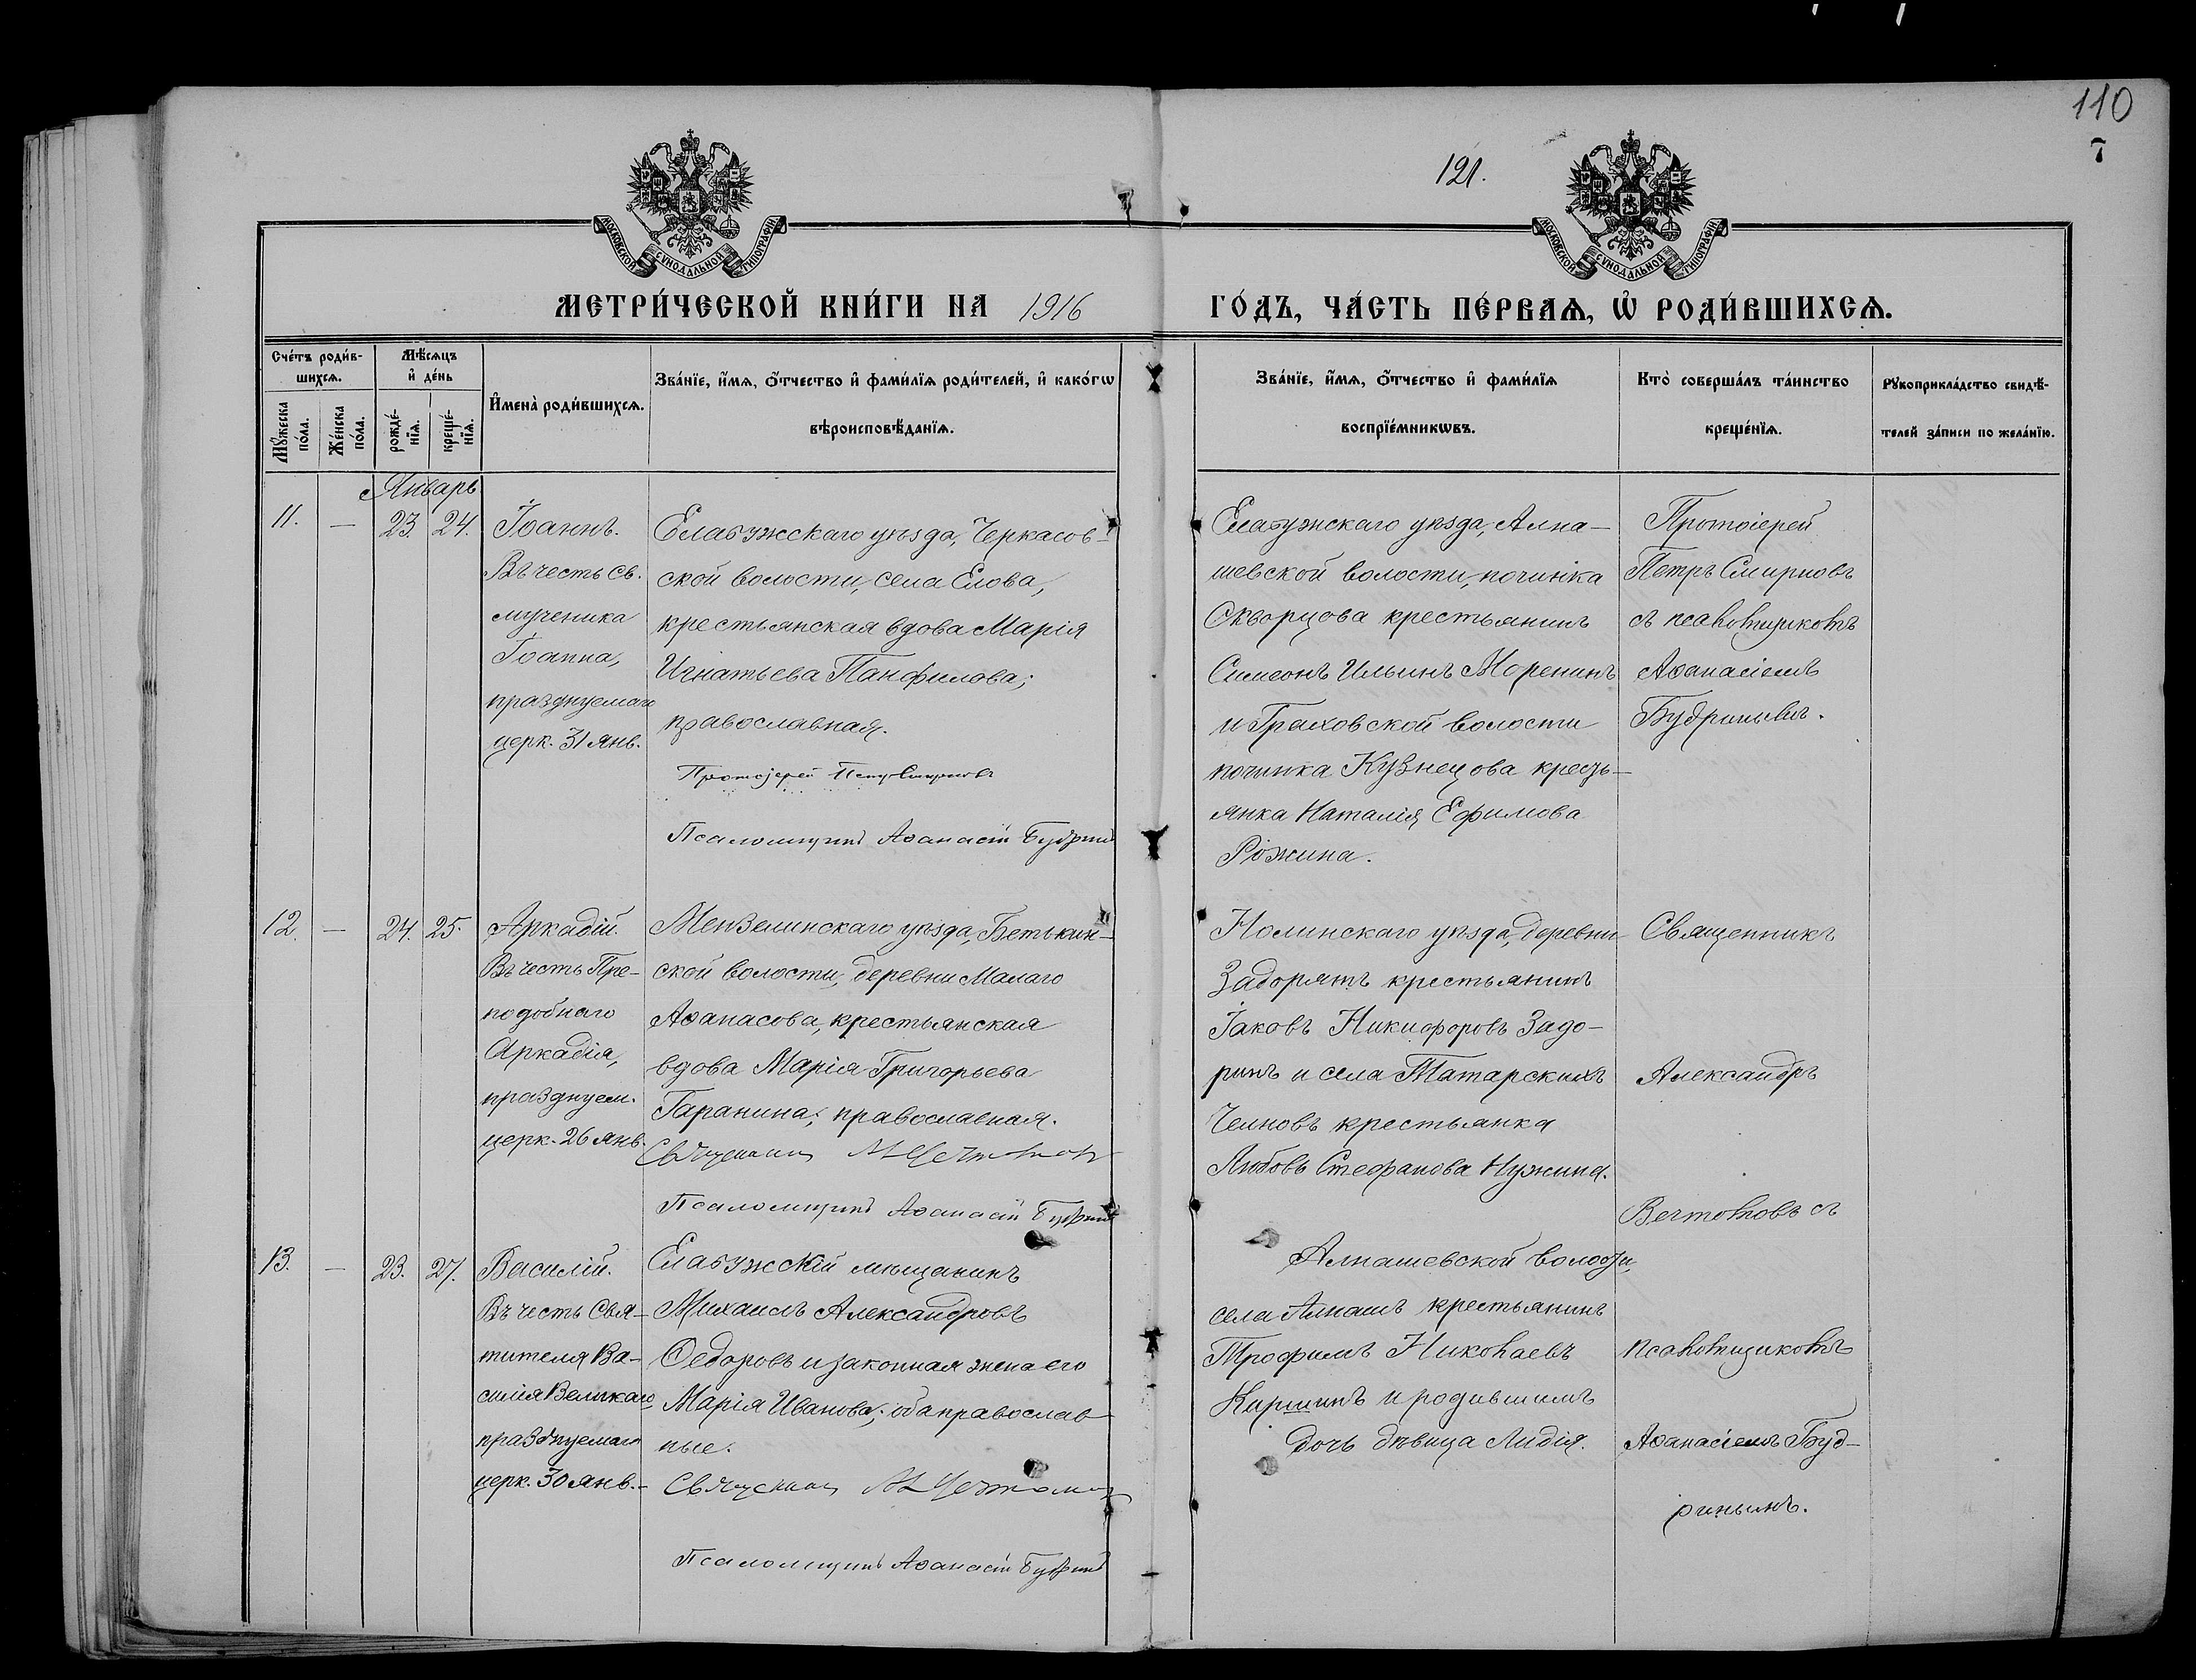 110
121.
МОСКОВСКОЙ СѴНОДАЛЬНОЙ ТИПОГРАФІИ
МОСКОВСКОЙ СѴНОДАЛЬНОЙ ТИПОГРАФІИ
МЕТРИ́ЧЕСКОЙ КНИ́ГИ НА 1916 ГО́ДЪ, ЧА́СТЬ ПЕ́РВАѦ, Ѡ҆ РОДИ́ВШИХСѦ.
Сче́тъ роди́в-
шихсѧ.
Мꙋ́жеска по́ла.
Же́нска по́ла.
Мѣ́сѧцъ
и҆ де́нь
рожде́-нїѧ.
креще́-нїѧ.
И҆мена̀ роди́вшихсѧ.
Зва́нїе, и҆́мѧ, ѻ҆́тчество и҆ фами́лїѧ роди́телей, и҆ како́гѡ
вѣроисповѣ́данїѧ.
Зва́нїе, и҆́мѧ, ѻ҆́тчество и҆ фами́лїѧ
воспрїе́мникѡвъ.
Кто̀ соверша́лъ та́инство
креще́нїѧ.
Рꙋкоприкла́дство свидѣ́-
телей за́писи по жела́нїю.
Январь
11. — 23. 24.
Іоаннъ.
Въ честь св.
мученика
Іоанна,
празднуемаго
церк. 31 янв.
Елабужскаго уѣзда, Черкасов-
ской волости, села Елова,
крестьянская вдова Марія
Игнатьева Панфилова;
православная.
Протоіерей Петръ Смирновъ
Псаломщикъ Аѳанасій Будринъ
Елабужскаго уѣзда,Ална-
шевской волости, починка
Скворцова крестьянинъ
Симеонъ Ильинъ Моренинъ
и Граховской волости
починка Кузнецова кресть-
янка Наталія Ефимова
Рожина.
Протоіерей
Петръ Смирновъ
съ псаломщикомъ
Аѳанасіемъ
Будринымъ.
12. — 24. 25.
Аркадій.
Въ честь Пре-
подобнаго
Аркадія,
празднуем.
церк. 26 янв.
Мензелинскаго уѣзда, Бетькин-
ской волости, деревни Малаго
Аѳанасова, крестьянская
вдова Марія Григорьева
Гаранина; православная.
Священникъ
Псаломщикъ Аѳанасій Будринъ
Нолинскаго уѣзда, деревни
Задорятъ крестьянинъ
Іаковъ Никифоровъ Задо-
ринъ и села Татарскихъ
Челновъ крестьянка
Любовь Стефанова Нужина.
Священникъ
Александръ
Вечтомовъ съ
псаломщикомъ
Аѳанасіемъ Буд-
ринымъ.
13. — 23. 27.
Василій.
Въ честь Свя-
тителя Ва-
силія Великаго,
празднуемаго
церк. 30 янв.-
Елабужскій мѣщанинъ
Михаилъ Александровъ
Ѳедоровъ и законная жена его
Марія Иванова; оба православ-
ные.
Священникъ
Псаломщикъ Аѳанасій Будринъ
Алнашевской волости,
села Алнашъ крестьянинъ
Трофимъ Николаевъ
Киршинъ и родившимъ
дочь дѣвица Лидія.